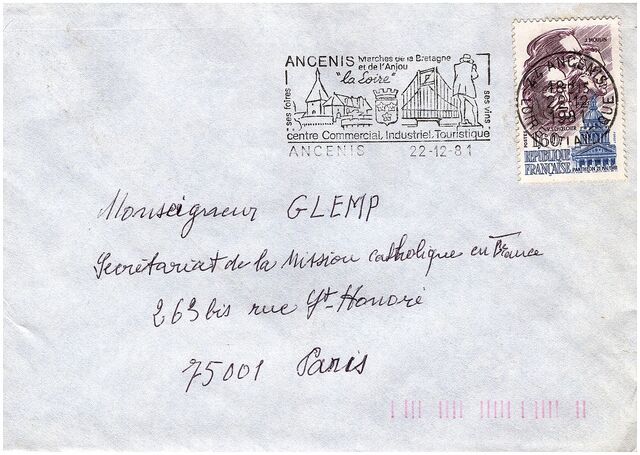 ANCENIS Marches de la Bretagne
et de l'Anjou
"la Loire"
ses foires
ses vins
centre Commercial, Industriel, Touristique
ANCENIS 22-12-81
J. MOULIN
44 ANCENIS
18H15
22-12
1981
LOIRE ATLANTIQUE
1,60
REPUBLIQUE
FRANÇAISE
PANTHEON 21 MAI 1981
Monseigneur GLEMP
Secrétariat de la Mission catholique en France
263 bis rue St-Honoré
75001 Paris